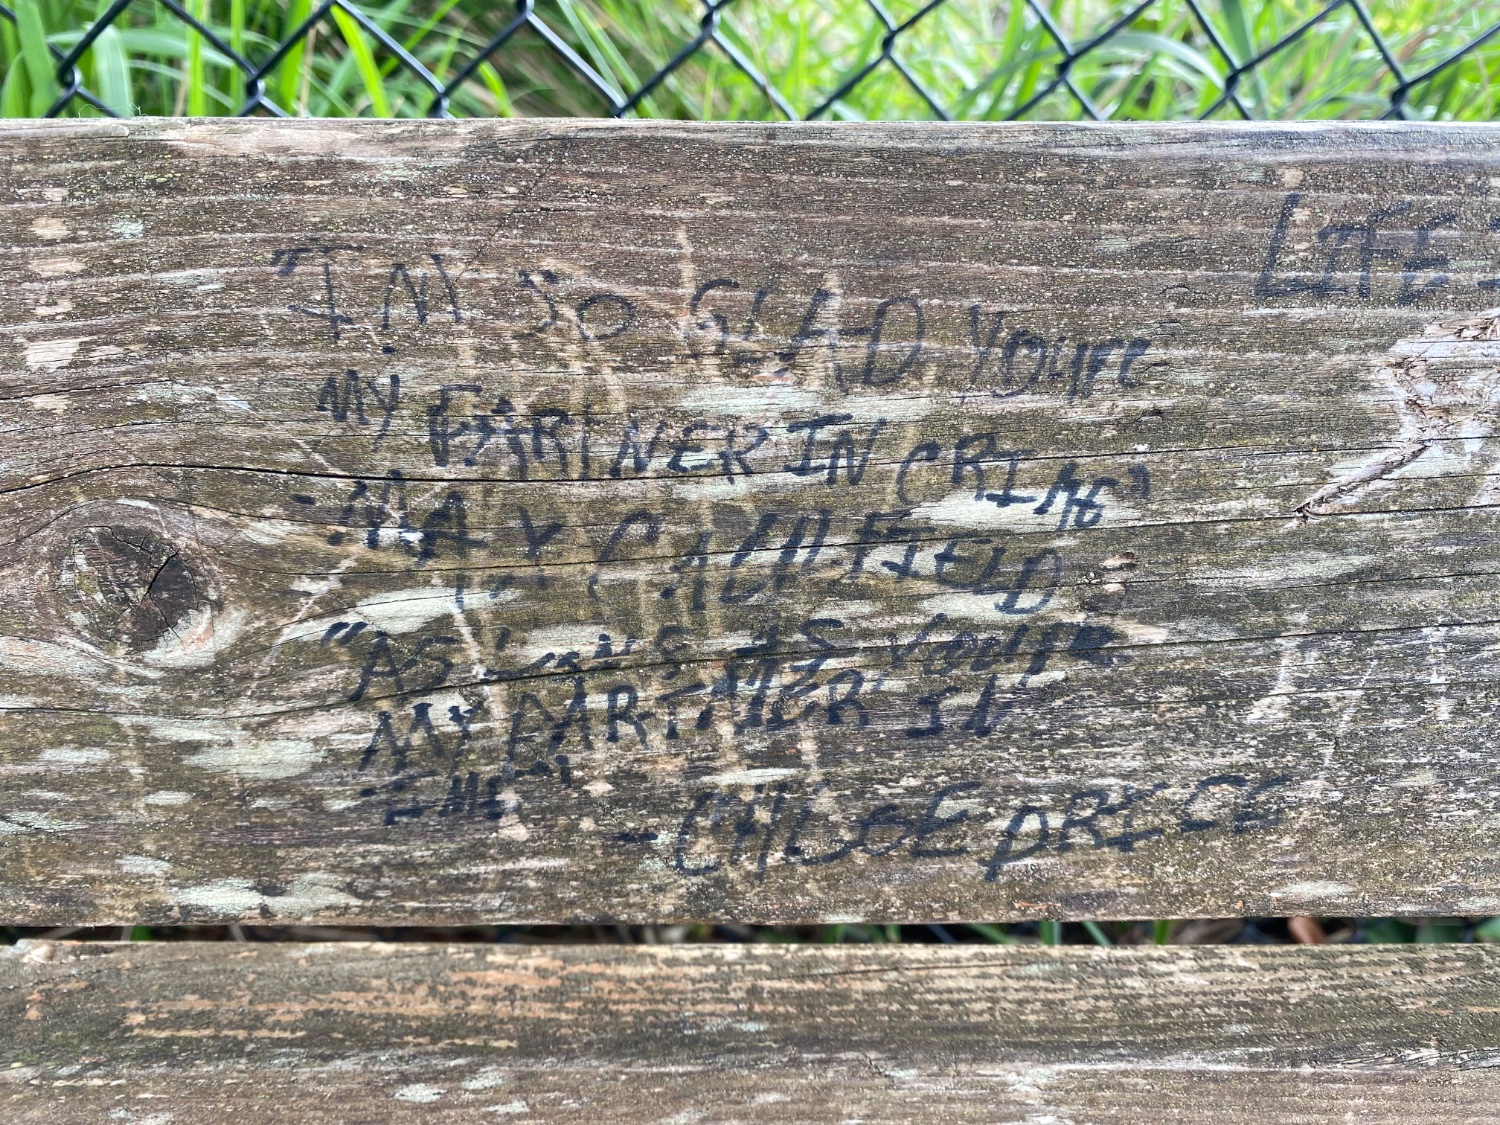 "I'M SO GLAD YOU'RE
MY PARTNER IN CRIME"
- MAX CAULFIELD
"AS LONG AS YOU'RE
MY PARTNER IN
TIME"
- CHLOE PRICE
LIFE